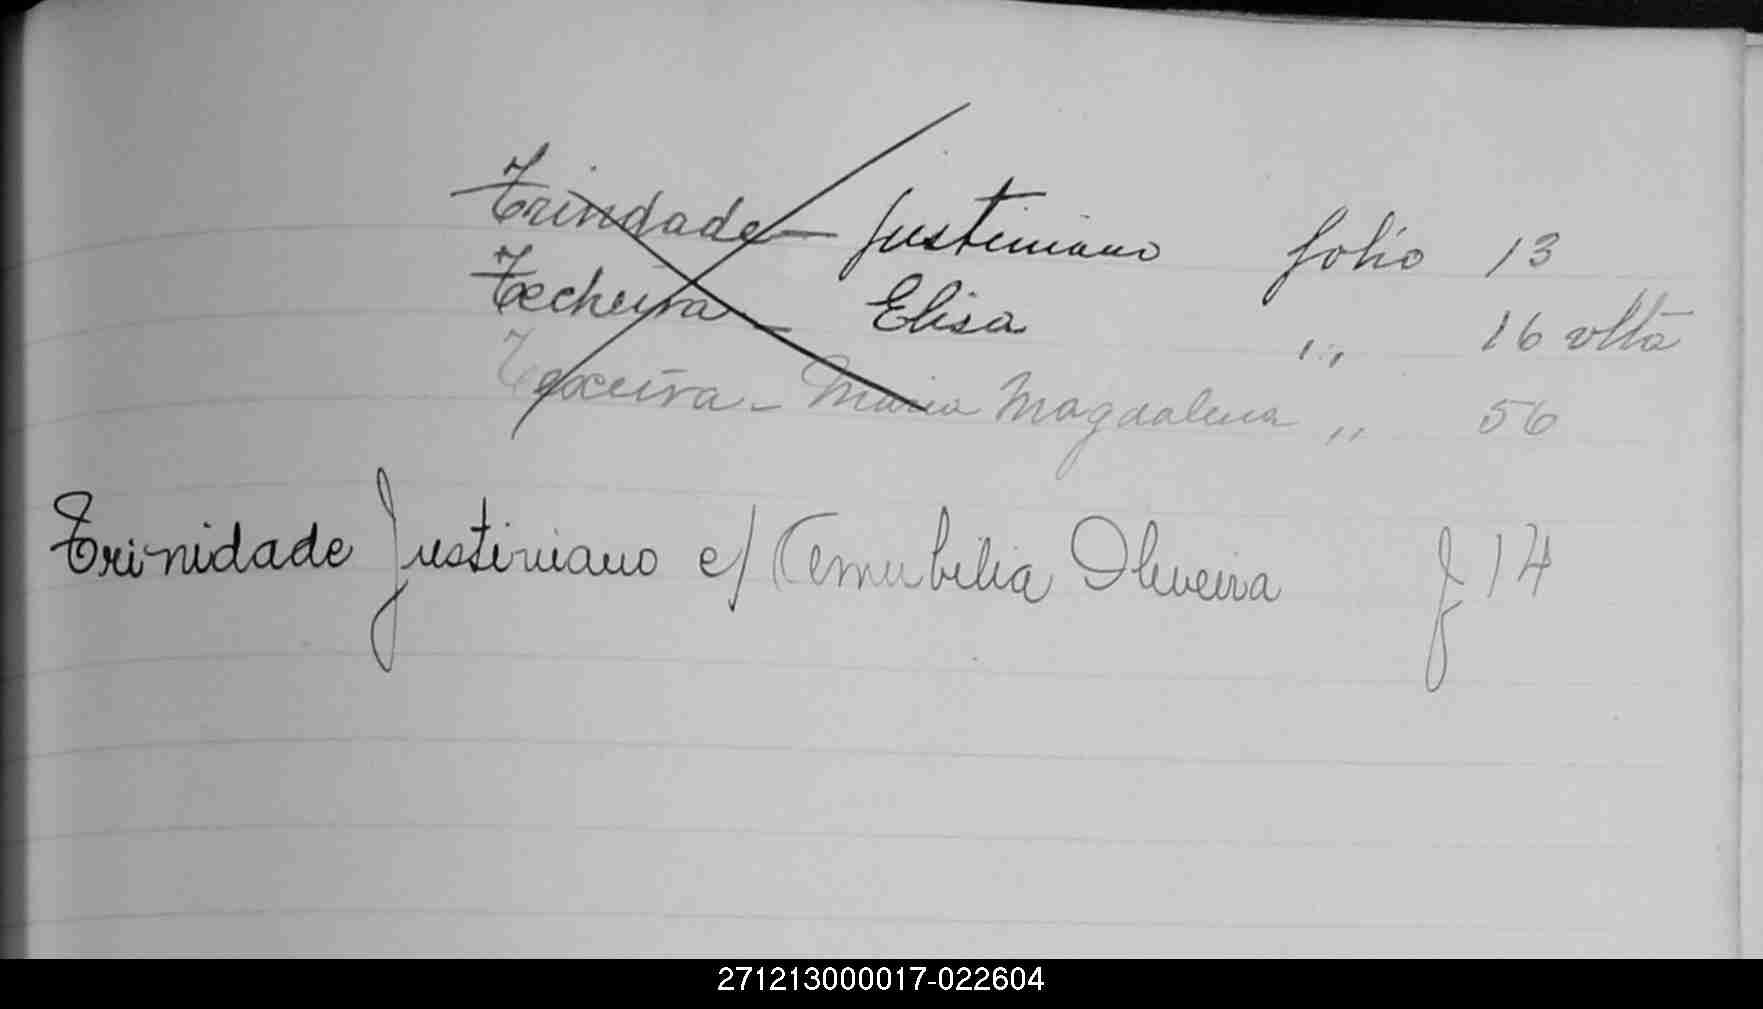 Trindade — Justiniano folio 13
Techeira _ Elisa ,, 16 vltа
Texeira - Maria Magdalena ,, 56
Trinidade Justiniano c/ Oliveira f 14
271213000017-022604